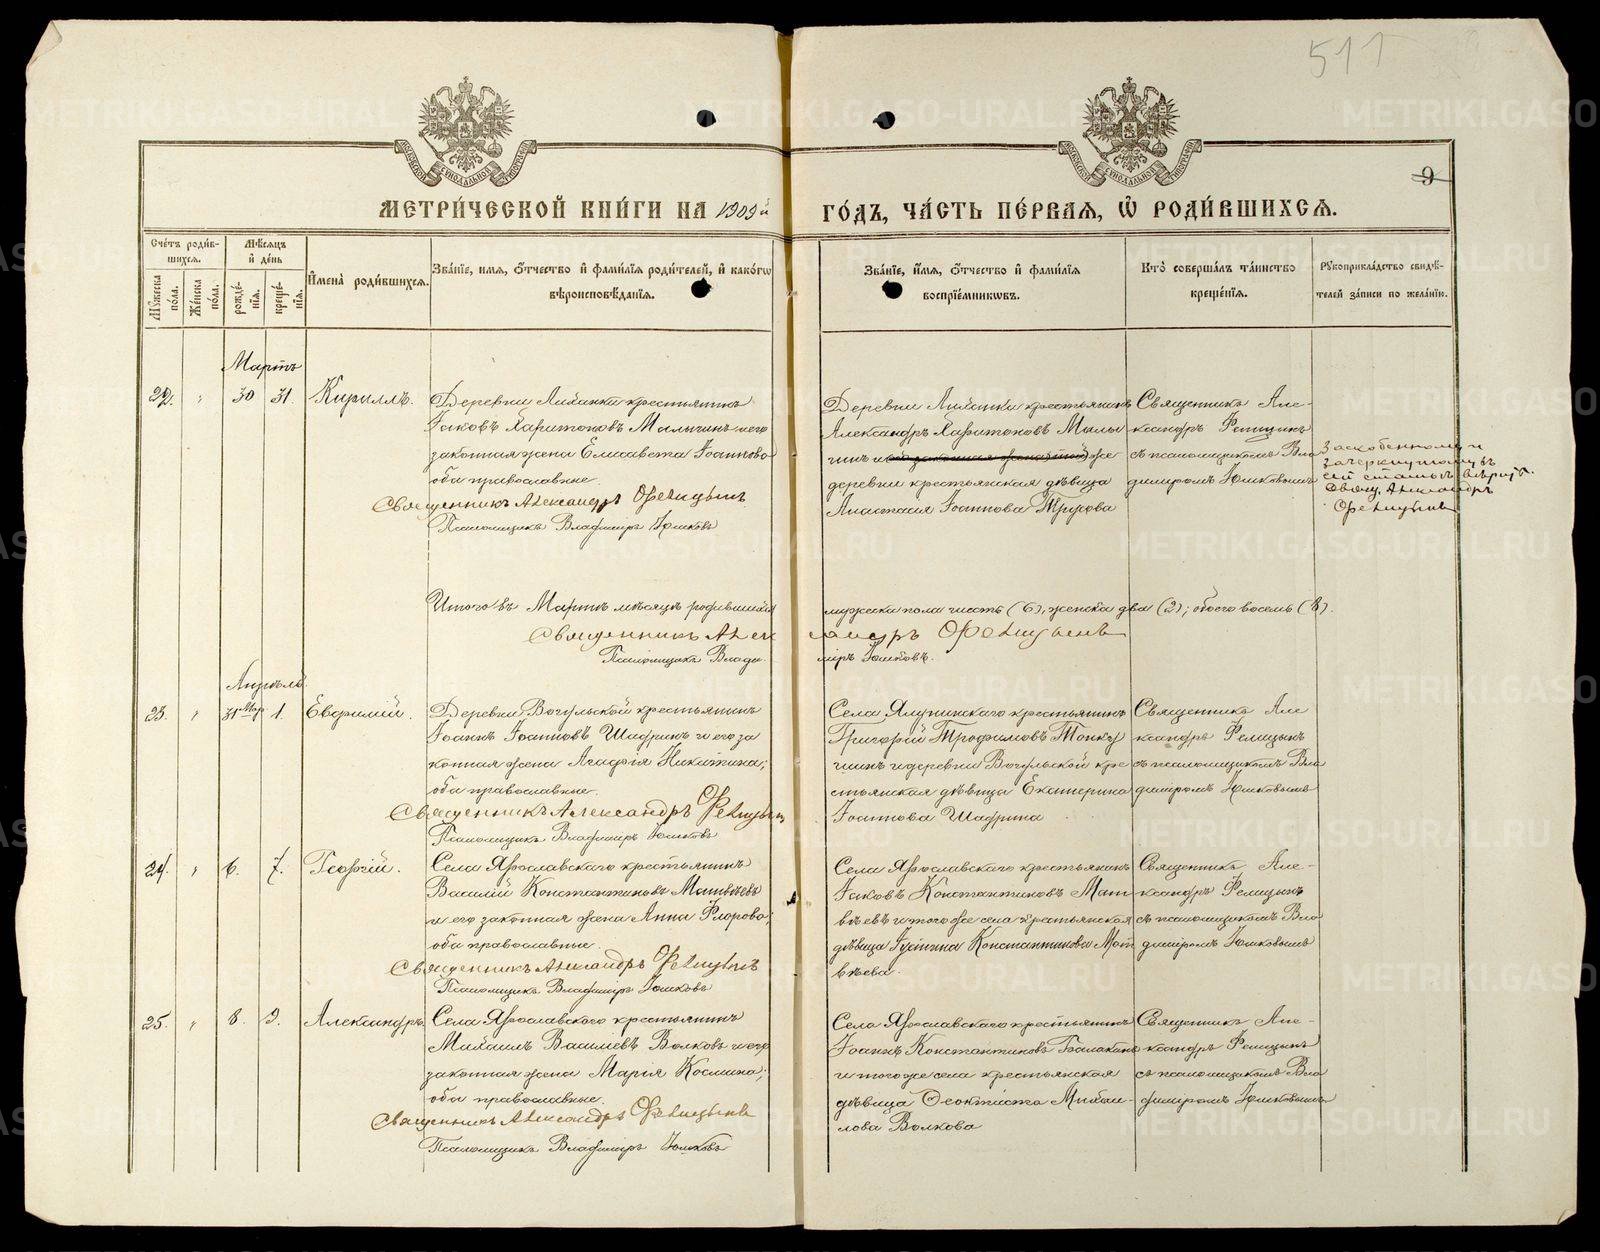 511
9
МЕТРИЧЕСКОЙ КНИГИ НА 1909й ГОДЪ, ЧАСТЬ ПЕРВАЯ, Ѡ РОДИВШИХСЯ.
Счетъ родив-
шихся.
Мужеска
пола.
Женска
пола.
Мѣсяцъ
и день
рожде-
нія.
креще-
нія.
Имена родившихся.
Званіе, имя, отчество и фамилія родителей, и какого
вѣроисповѣданія.
Званіе, имя, отчество и фамилія
воспріемниковъ.
Кто совершалъ таинство
крещенія.
Рукоприкладство свидѣ-
телей записи по желанію.
Мартъ
22. " 30 31. Кириллъ.
Деревни крестьянинъ
Іаковъ Харитоновъ Малыгинъ и его
законная жена Елисавета Іоаннова
оба православные.
Священникъ Александръ
Псаломщикъ Владиміръ Юшковъ
Деревни крестьянинъ
Александръ Харитоновъ Малы
гинъ и же
деревни крестьянская дѣвица
Анастасія Іоаннова
Священникъ Але-
ксандръ
съ псаломщикомъ Вла
диміромъ Юшковымъ
зачеркнутому
вѣрить.
Свящ. Александръ
Итого въ Мартѣ мѣсяцѣ родившихся мужеска пола шесть (6), женска два (2); обоего восемь (8).
Священникъ Александръ
Псаломщикъ Владиміръ Юшковъ.
Апрѣль
23. " 31 Мар. 1. Евѳимій.
Деревни Вогульской крестьянинъ
Іоаннъ Іоанновъ Шадринъ и его за
конная жена Агафія Никитина;
оба православные.
Священникъ Александръ
Псаломщикъ Владиміръ Юшковъ
Села Ялунинскаго крестьянинъ
Григорій Трофимовъ
и деревни Вогульской кре
стьянская дѣвица Екатерина
Іоаннова Шадрина
Священникъ Але
ксандръ
съ псаломщикомъ Вла
диміромъ Юшковымъ
24. " 6. 7. Георгій.
Села Ярославскаго крестьянинъ
Василій Константиновъ Матвѣевъ
и его законная жена Анна Флорова;
оба православные.
Священникъ Александръ
Псаломщикъ Владиміръ Юшковъ
Села Ярославскаго крестьянинъ
Іаковъ Константиновъ Мат
вѣевъ и того же села крестьянская
дѣвица Константинова Мат
вѣева.
Священникъ Але-
ксандръ
съ псаломщикомъ Вла
диміромъ Юшковымъ
25. " 8. 9. Александръ.
Села Ярославскаго крестьянинъ
Михаилъ Василіевъ Волковъ и его
законная жена Марія Космина;
оба православные.
Священникъ Александръ
Псаломщикъ Владиміръ Юшковъ
Села Ярославскаго крестьянинъ
Іоаннъ Константиновъ Балакинъ
и того же села крестьянская
дѣвица Ѳеоктиста Михаи-
лова Волкова
Священникъ Але-
ксандръ
съ псаломщикомъ Вла
диміромъ Юшковымъ
METRIKI.GASO-URAL.RU